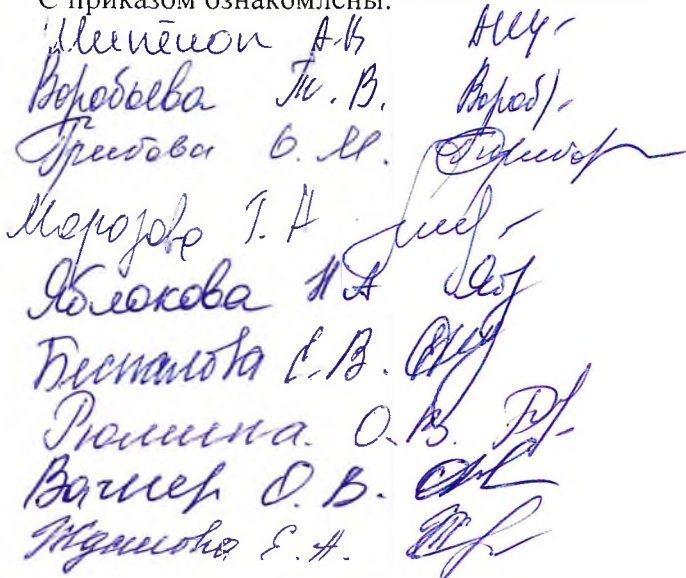 С приказом ознакомлены:
А.В
Воробьева Т. В. Вороб
Грибова О. М.
Морозова Т. А
Яблокова Н А Яб
Беспалова Е. В.
Рюмина. О. В.
Вагнер О. В.
Жданова Е. А.